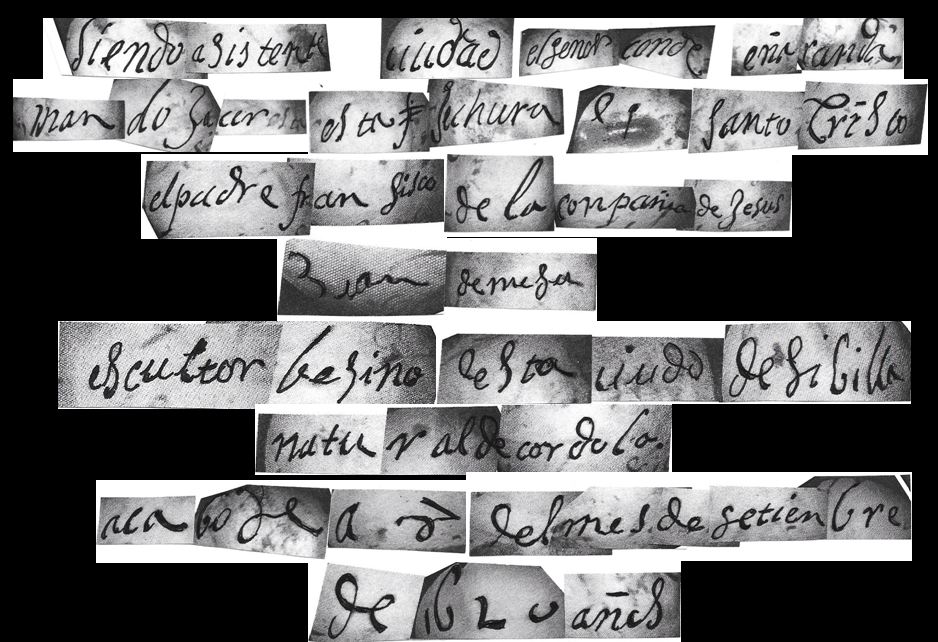 siendo asistente ciudad el señor conde eña randa
mando haser esta echura santo Cristo
el padre fran sisco de la conpañia de Jesus
Juan de mesa
escultor besino desta ciudad de sibilla
natu ral de cordoba
acabose a del mes de setienbre
de 1620 años